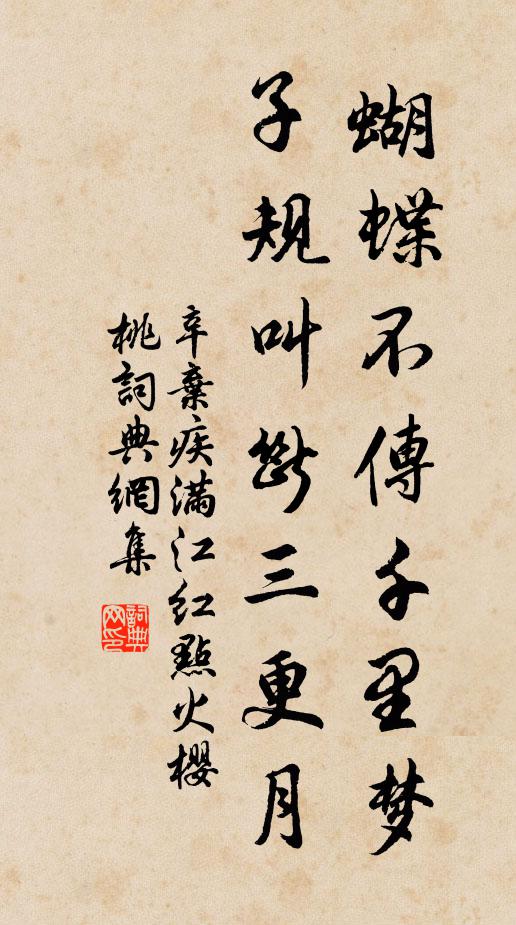 蝴蝶不傳千里梦
子規叫斷三更月
辛棄疾滿江红點火櫻
桃詞典網集
詞典
网印